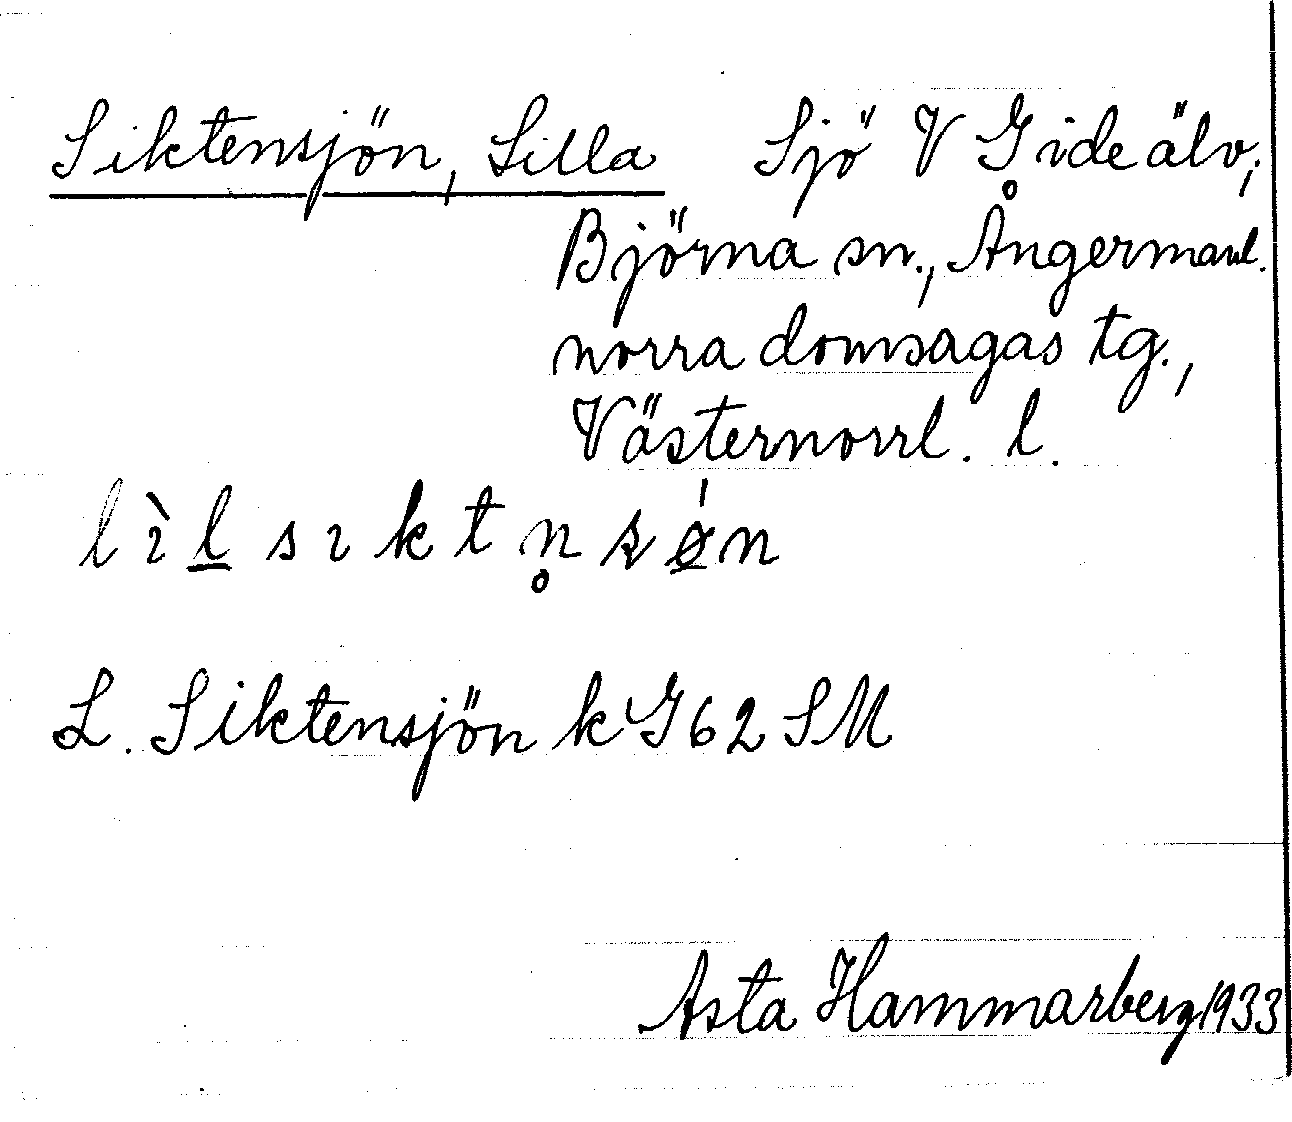 Siktensjön, Lilla Sjö V Gideälv,
Björna sn., Ångermanl.
norra domsagas tg.,
Västernorrl. l.
lìl̲ sıktn̥ʂǿn
L. Siktensjön k G 62 SM
Asta Hammarberg 1933